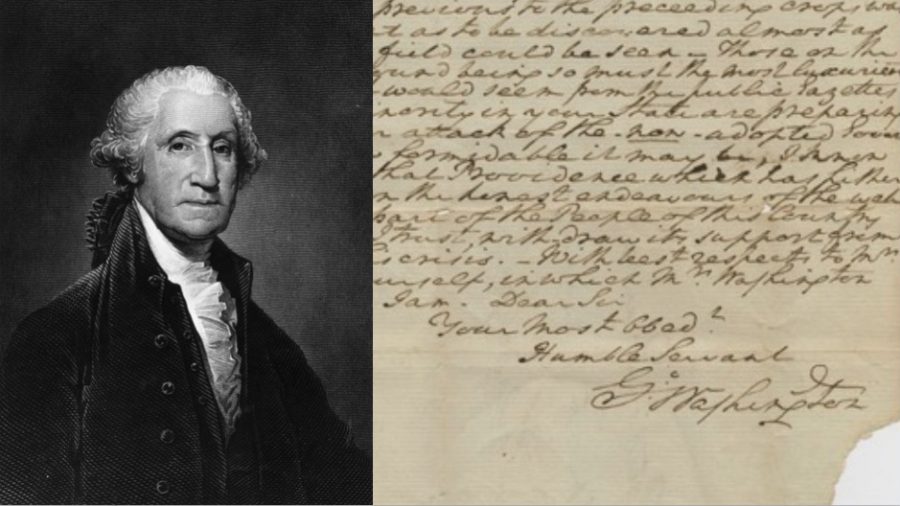 previous to the preceeding crops wa
t as to be discovered almost as
field could be seen — Those on the
ound being so must the most luxurien
would seem from the public Gazettes
inority in your State are preparing
r attack of the now - adopted Gover
formidable it may be, I know
that Providence which has hither
n the honest endeavours of the well
part of the People of this Country
trust, withdraw its support from
crisis. — With best respects to Mrs
urself, in which Mrs. Washington
I am — Dear Sir
Your Most Obedt.
Humble Servant
Go. Washington